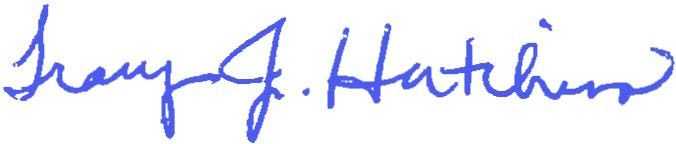 Tracy J. Hutchinson